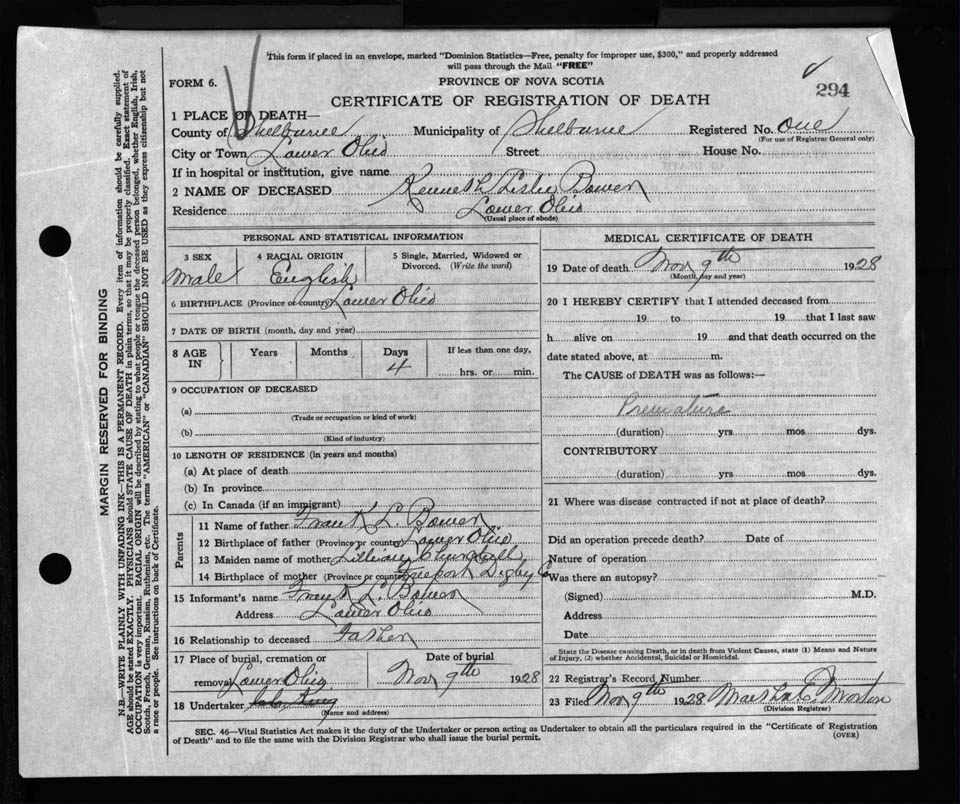 This form if placed in an envelope, marked "Dominion Statistics—Free, penalty for improper use, $300," and properly addressed
will pass through the Mail "FREE"
FORM 6.
PROVINCE OF NOVA SCOTIA
294
CERTIFICATE OF REGISTRATION OF DEATH
1 PLACE OF DEATH—
County of Shelburne Municipality of Shelburne Registered No. one
(For use of Registrar General only)
City or Town Lower Ohio Street House No.
If in hospital or institution, give name
2 NAME OF DECEASED Kenneth Leslie Bower
Residence Lower Ohio
(Usual place of abode)
PERSONAL AND STATISTICAL INFORMATION
3 SEX 4 RACIAL ORIGIN 5 Single, Married, Widowed or
Divorced. (Write the word)
Male English
6 BIRTHPLACE (Province or country) Lower Ohio
7 DATE OF BIRTH (month, day and year)
8 AGE IN Years Months Days If less than one day,
4 hrs. or min.
9 OCCUPATION OF DECEASED
(a)
(Trade or occupation or kind of work)
(b)
(Kind of industry)
10 LENGTH OF RESIDENCE (in years and months)
(a) At place of death
(b) In province
(c) In Canada (if an immigrant)
Parents
11 Name of father Frank L. Bower
12 Birthplace of father (Province or country) Lower Ohio
13 Maiden name of mother Lillian Churchill
14 Birthplace of mother (Province or country) Freeport Digby Co
15 Informant's name Frank L. Bower
Address Lower Ohio
16 Relationship to deceased Father
17 Place of burial, cremation or Date of burial
removal Lower Ohio Nov 9th 1928
18 Undertaker
(Name and address)
MEDICAL CERTIFICATE OF DEATH
19 Date of death Nov 9th 1928
(Month, day and year)
20 I HEREBY CERTIFY that I attended deceased from
19 to 19 that I last saw
h alive on 19 and that death occurred on the
date stated above, at m.
The CAUSE of DEATH was as follows:—
Premature
(duration) yrs mos dys.
CONTRIBUTORY
(duration) yrs mos dys.
21 Where was disease contracted if not at place of death?
Did an operation precede death? Date of
Nature of operation
Was there an autopsy?
(Signed) M.D.
Address
Date
State the Disease causing Death, or in death from Violent Causes, state (1) Means and Nature
of Injury, (2) whether Accidental, Suicidal or Homicidal.
22 Registrar's Record Number
23 Filed Nov 9th 1928 Martha E.
(Division Registrar)
SEC. 46—Vital Statistics Act makes it the duty of the Undertaker or person acting as Undertaker to obtain all the particulars required in the "Certificate of Registration
of Death" and to file the same with the Division Registrar who shall issue the burial permit.
(OVER)
MARGIN RESERVED FOR BINDING
N.B.—WRITE PLAINLY WITH UNFADING INK—THIS IS A PERMANENT RECORD. Every item of information should be carefully supplied.
AGE should be stated EXACTLY. PHYSICIANS should STATE CAUSE OF DEATH in plain terms, so that it may be properly classified. Exact statement of
OCCUPATION is very important. RACIAL ORIGIN will be described by stating to what people or tongue the deceased person belonged, whether English, Irish,
Scotch, French, German, Russian, Ruthenian, etc. The terms "AMERICAN" or "CANADIAN" SHOULD NOT BE USED as they express citizenship but not
a race or people. See instructions on back of Certificate.